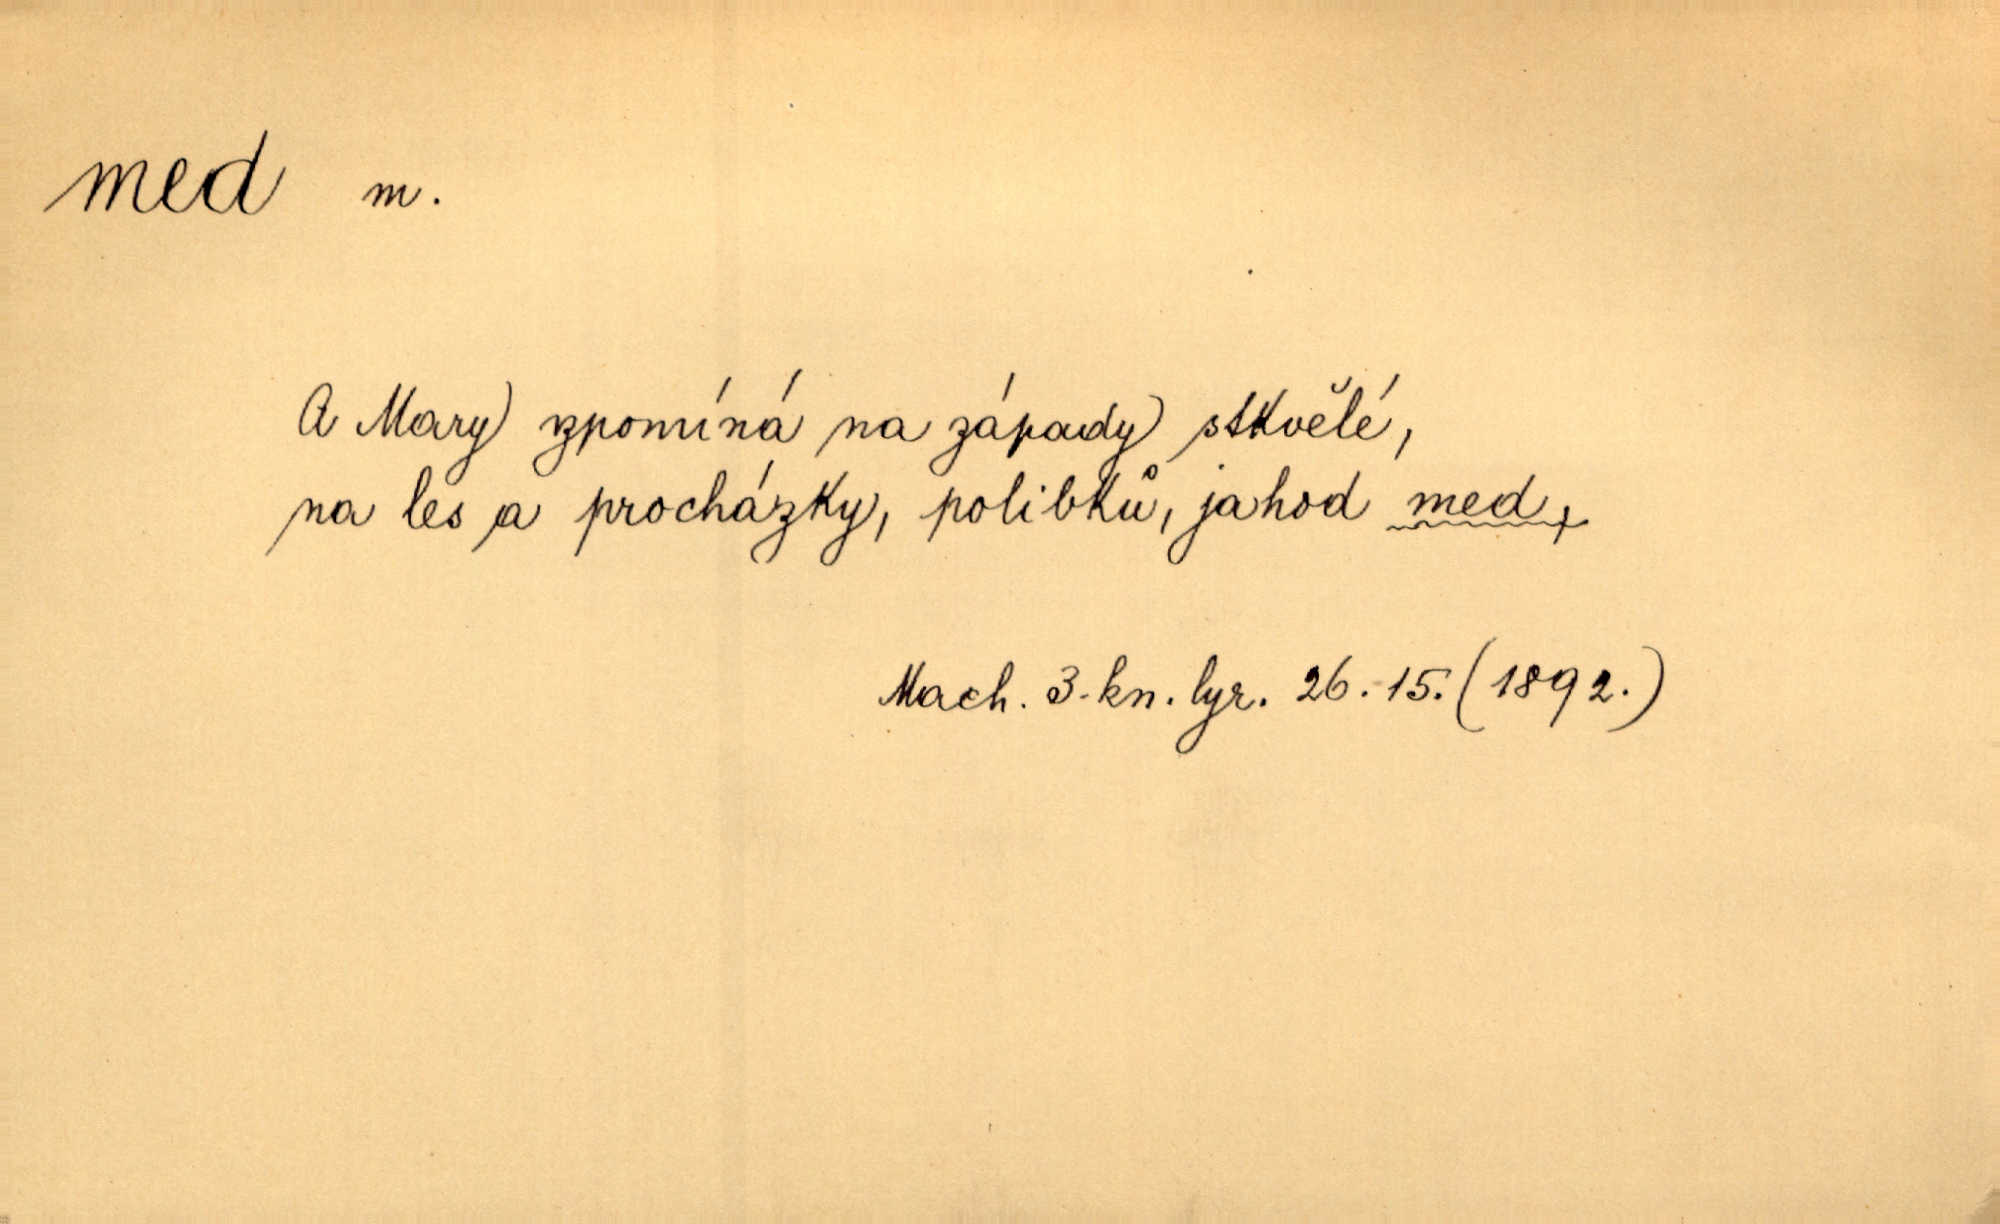 med m.
A Mary vzpomíná na západy stkvělé,
na les a procházky, polibků, jahod med,
Mach. 3. kn. lyr. 26. 15. (1892.)